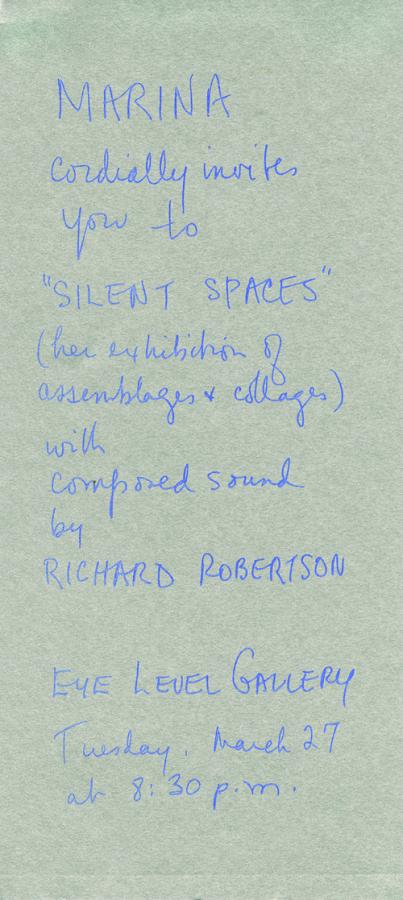 MARINA
cordially invites
you to
"SILENT SPACES"
(her exhibition of
assemblages & collages)
with
composed sound
by
RICHARD ROBERTSON
EYE LEVEL GALLERY
Tuesday, March 27
at 8:30 p.m.